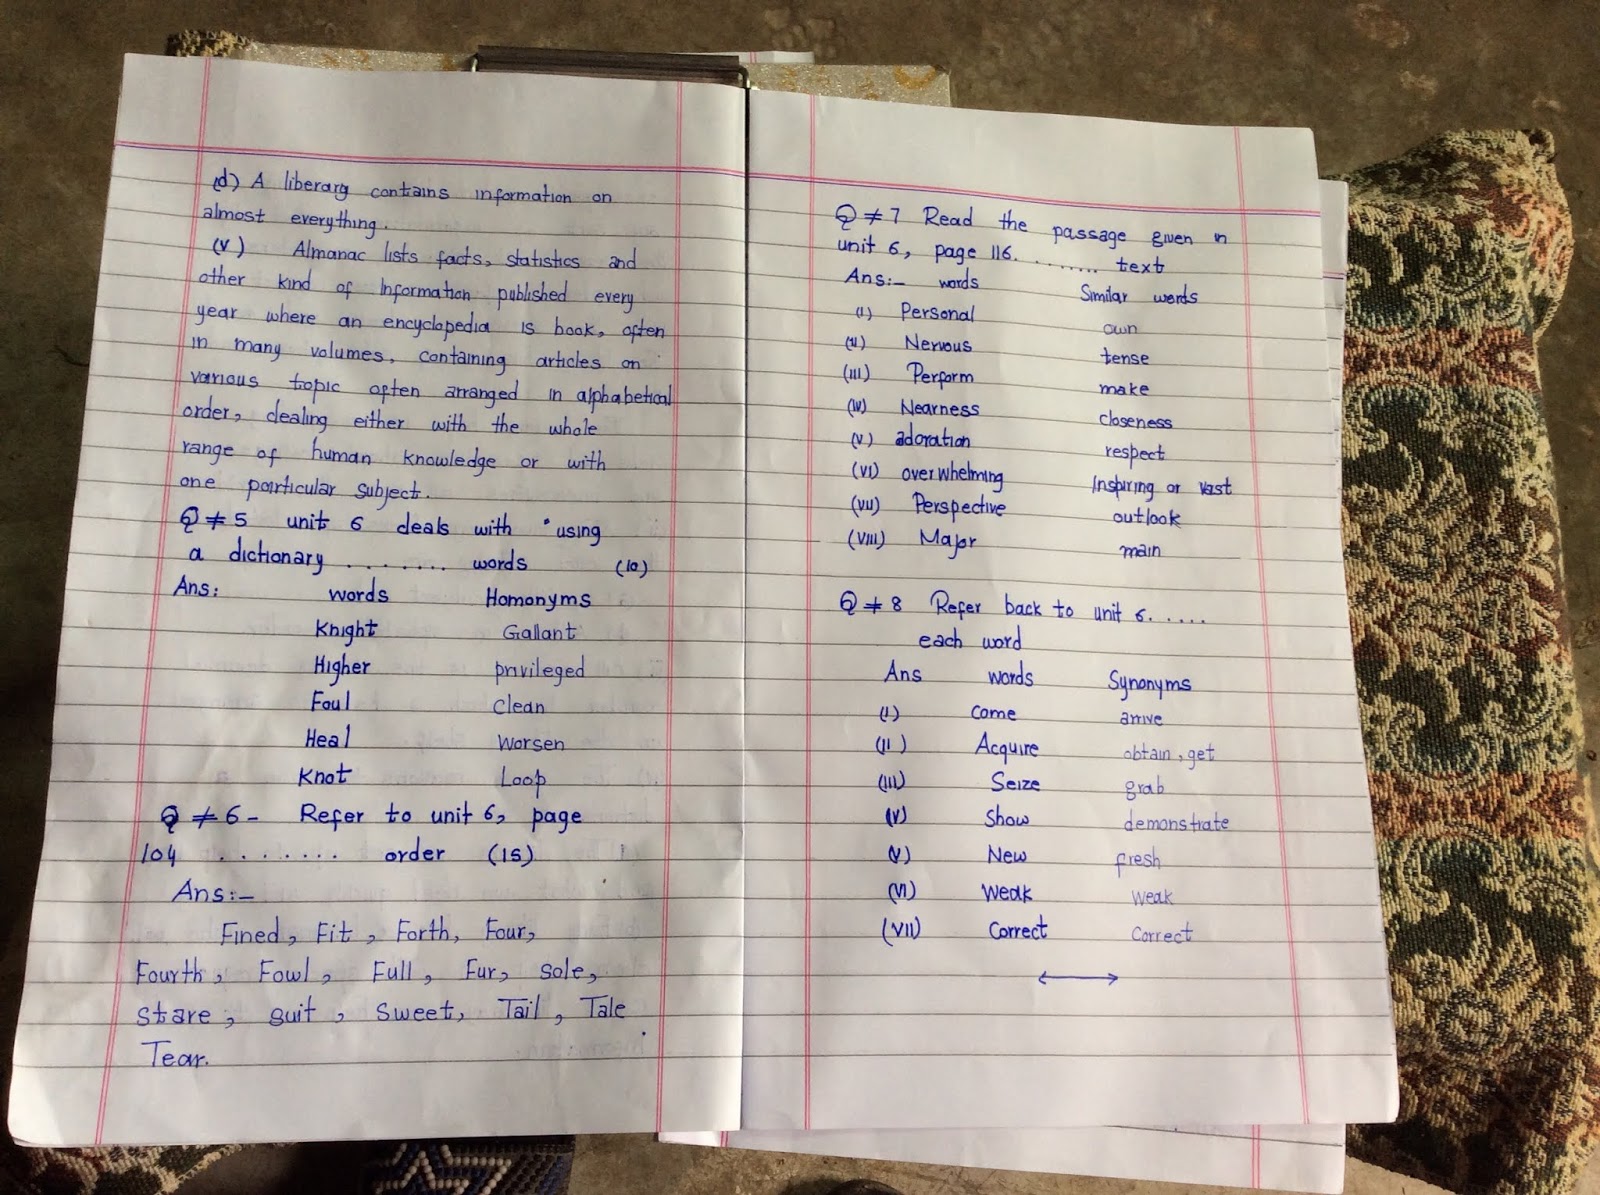 (d) A liberary contains information on
almost everything.
(v) Almanac lists facts, statistics and
other kind of Information published every
year where an encyclopedia is book, often
in many volumes, containing articles on
various topic often arranged in alphabetical
order, dealing either with the whole
range of human knowledge or with
one particular subject.
Q ≠ 5 unit 6 deals with "using
a dictionary ........ words (10)
Ans: words Homonyms
Knight Gallant
Higher privileged
Foul Clean
Heal Worsen
Knot Loop
Q ≠ 6 - Refer to unit 6, page
104 ........ order (15)
Ans:-
Fined, Fit, Forth, Four,
Fourth, Fowl, Full, Fur, Sole,
Stare, suit, Sweet, Tail, Tale
Tear.
Q ≠ 7 Read the passage given in
unit 6, page 116......... text
Ans:- words Similar words
(I) Personal own
(II) Nervous tense
(III) Perform make
(IV) Nearness closeness
(V) adoration respect
(VI) overwhelming Inspiring or vast
(VII) Perspective outlook
(VIII) Major main
Q ≠ 8 Refer back to unit 6......
each word
Ans words Synonyms
(I) Come arrive
(II) Acquire obtain, get
(III) Seize grab
(V) Show demonstrate
(V) New fresh
(VI) Weak Weak
(VII) Correct Correct